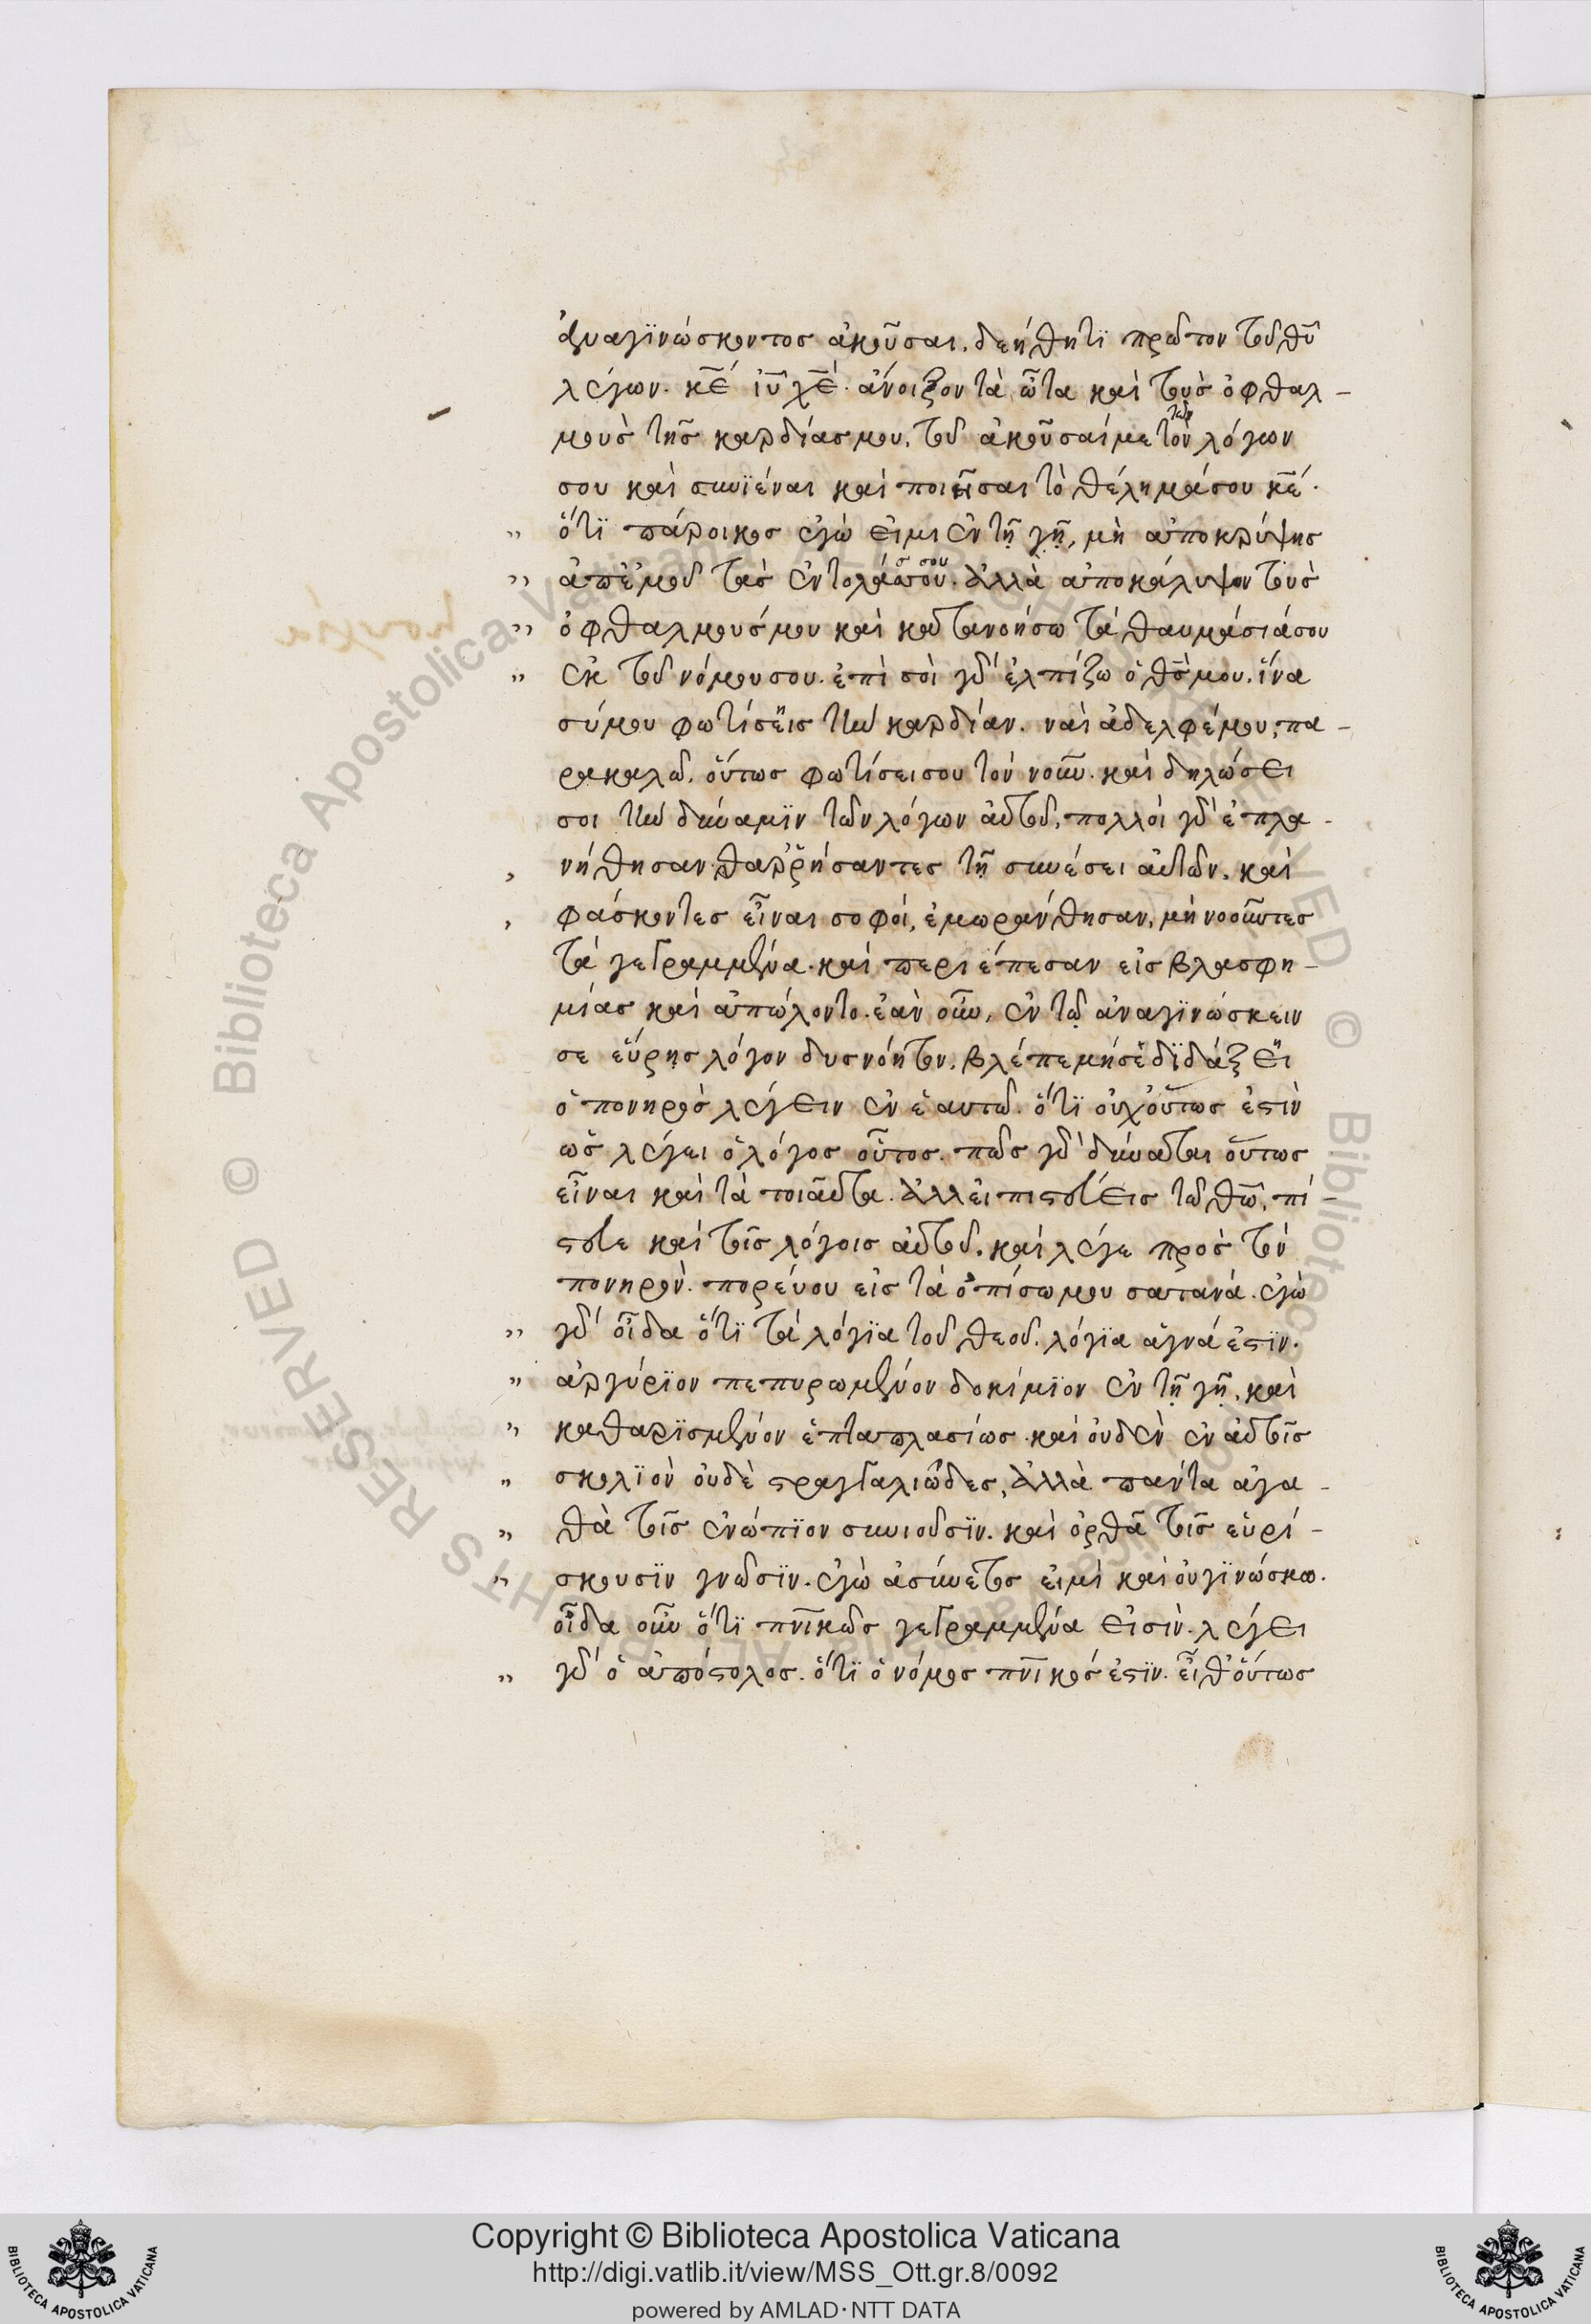 ἀναγϊνώσκοντος ἀκοῦσαι. δεήθητϊ πρῶτον τοῦ θυ̅
λέγων. κ̅ε̅ ἰυ̅ χ̅ε̅. ἄνοιξον τὰ ὦτα καὶ τοὺσ ὀφθαλ-
μοὺσ τῆσ καρδίασ μου, τοῦ ἀκοῦσαί με τὸν λόγων
τῶν
σου καὶ συνϊέναι καὶ ποιῆσαι τὸ θέλημά σου κ̅ε̅.
,, ὅτϊ πάροικοσ ἐγώ εἰμι ἐν τῇ γῇ, μὴ ἀποκρύψησ
,, ἀπ' ἐμοῦ τὰσ ἐντολάσ σου. ἀλλὰ ἀποκάλυψον τοὺσ
,, ὀφθαλμούσ μου καὶ κατανοήσω τὰ θαυμάσιά σου
,, ἐκ τοῦ νόμου σου. ἐπὶ σοὶ γὰρ ἐλπίζω ὁ θ̅σ̅ μου. ἵνα
σύ μου φωτίσῃσ τὴν καρδίαν. ναὶ ἀδελφέ μου, πα-
ρακαλῶ. οὕτωσ φωτίσει σου τὸν νοῦν. καὶ δηλώσει
σοι τὴν δύναμϊν τῶν λόγων αὐτοῦ. πολλοὶ γὰρ ἐπλα-
, νήθησαν θαρρήσαντεσ τῇ συνέσει αὐτῶν. καὶ
, φάσκοντεσ εἶναι σοφοί, ἐμωράνθησαν, μὴ νοοῦντεσ
τὰ γεγραμμένα. καὶ περιέπεσαν εἰσ βλασφη-
μίασ καὶ ἀπώλοντο. ἐὰν οὖν, ἐν τῷ ἀναγϊνώσκειν
σε εὕρῃσ λόγον δυσνόητον, βλέπε μή σε δϊδάξει
ὁ πονηρὸσ λέγειν ἐν ἑαυτῶ. ὅτϊ οὐχ οὕτωσ ἐστιν
ὡσ λέγει ὁ λόγοσ οὗτοσ. πῶσ γὰρ δύναται οὕτωσ
εἶναι καὶ τὰ τοιαῦτα. ἀλλ' εἰ πιστεύεισ τῶ θω̅, πί-
στευε καὶ τοῖσ λόγοισ αὐτοῦ. καὶ λέγε πρὸσ τὸν
πονηρὸν. πορεύου εἰσ τὰ ὀπίσω μου σατανά. ἐγὼ
,, γὰρ οἶδα ὅτϊ τὰ λόγϊα τοῦ θεοῦ. λόγϊα ἁγνά ἐστϊν.
,, ἀργύρϊον πεπυρωμένον δοκίμϊον ἐν τῇ γῇ. καὶ
,, καθαρϊσμένον ἑπταπλασίωσ. καὶ οὐδὲν ἐν αὐτοῖσ
,, σκολϊὸν οὐδὲ στραγγαλιῶδεσ, ἀλλὰ πάντα ἀγα-
,, θὰ τοῖσ ἐνώπϊον συνιοῦσϊν. καὶ ὀρθᾶ τοῖσ εὑρί-
,, σκουσϊν γνῶσϊν. ἐγὼ ἀσύνετόσ εἰμὶ καὶ οὐ γϊνώσκω.
οἶδα οὖν ὅτϊ πνι̅κῶσ γεγραμμένα εἰσὶν. λέγει
,, γὰρ ὁ ἀπόστολοσ. ὅτϊ ὁ νόμοσ πνι̅κόσ ἐστϊν. εἶθ' οὕτωσ
Copyright © Biblioteca Apostolica Vaticana
http://digi.vatlib.it/view/MSS_Ott.gr.8/0092
powered by AMLAD·NTT DATA